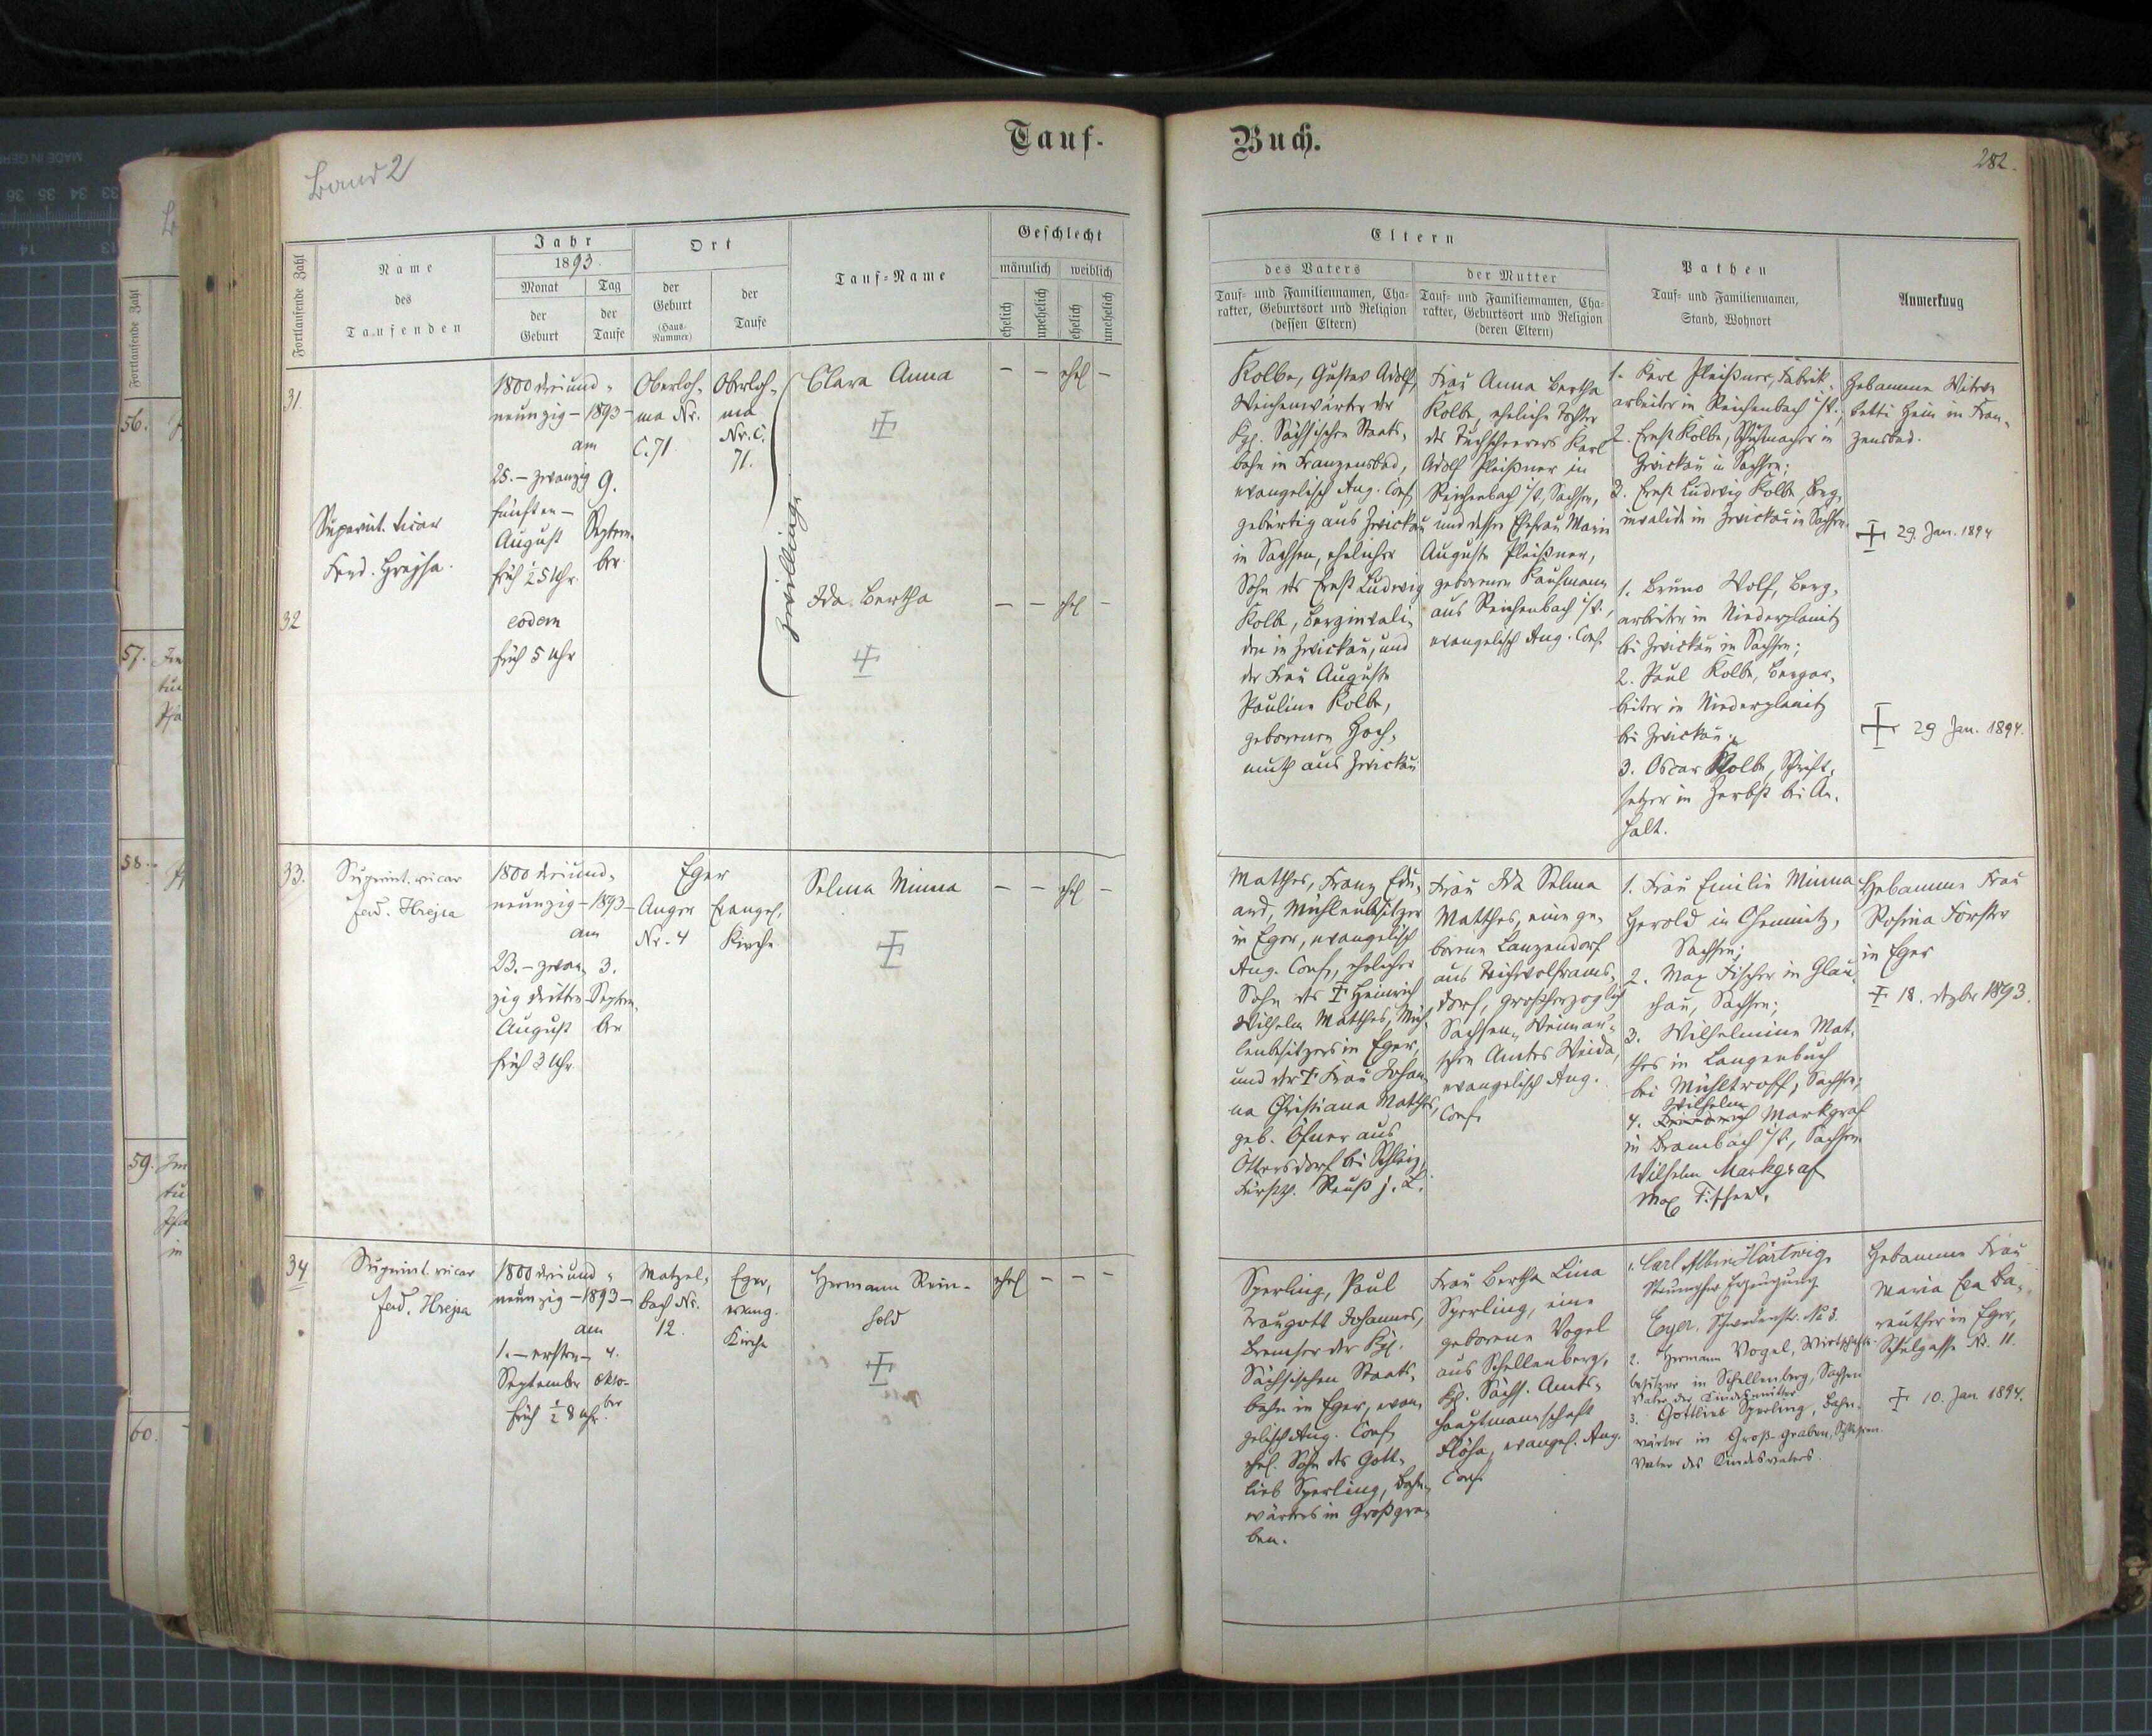 Tauf-
Buch.
Band 2
282.
Fortlaufende Zahl
Name
des
Taufenden
Jahr
1893.
Monat
der
Geburt
Tag
der
Taufe
Ort
der
Geburt
(Haus-
Nummer)
der
Taufe
Tauf-Name
Geschlecht
männlich
weiblich
ehelich
unehelich
ehelich
unehelich
Eltern
des Vaters
Tauf- und Familiennamen, Cha-
rakter, Geburtsort und Religion
(dessen Eltern)
der Mutter
Tauf- und Familiennamen, Cha-
rakter, Geburtsort und Religion
(deren Eltern)
Pathen
Tauf- und Familiennamen,
Stand, Wohnort
Anmerkung
31.
Superint. vicar
Ferd. Hrejsa.
1800 dreiund-
neunzig - 1893 -
am
25. - zwanzig
fünften -
August
früh ½5 Uhr.
9.
Septem-
ber.
Oberloh-
ma Nr.
C. 71.
Oberloh-
ma
Nr. C.
71.
Zwillinge
Clara Anna
- - ehel -
Kolbe, Gustav Adolf,
Weichenwärter der
Kgl. Sächsischen Staats-
bahn in Franzensbad,
evangelisch Aug. Conf.
gebürtig aus Zwickau
in Sachsen, ehelicher
Sohn des Ernst Ludwig
Kolbe, Berginvali-
den in Zwickau, und
der Frau Auguste
Pauline Kolbe,
geborenen Hoch-
muth aus Zwickau
Frau Anna Bertha
Kolbe, eheliche Tochter
des Tuchscherers Karl
Adolf Pleißner in
Reichenbach i/V. Sachsen,
und dessen Ehefrau Marie
Auguste Pleißner,
geborenen Kaufmann
aus Reichenbach i/V.,
evangelisch Aug. Conf.
1. Karl Pleißner, Fabrik-
arbeiter in Reichenbach i/V.;
2. Ernst Kolbe, Schuhmacher in
Zwickau in Sachsen;
3. Ernst Ludwig Kolbe, Berg-
invalide in Zwickau in Sachsen.
Hebamme Witwe
Betti Hein in Fran-
zensbad.
29. Jan. 1894
32
eodem
früh 5 Uhr
Ida Bertha
- - ehel -
1. Bruno Wolf, Berg-
arbeiter in Niederplanitz
bei Zwickau in Sachsen;
2. Paul Kolbe, Bergar-
beiter in Niederplanitz
bei Zwickau;
3. Oscar Kolbe, Schrift-
setzer in Zerbst bei An-
halt.
29 Jan. 1894.
33.
Superint. vicar
Ferd. Hrejsa
1800 dreiund-
neunzig - 1893 -
am
23. - zwan-
zig dritten
August
früh 3 Uhr.
3.
Septem-
ber
Eger
Anger
Nr. 4
Evangel.
Kirche
Selma Minna
- - ehel -
Matthes, Franz Edu-
ard, Mühlenbesitzer
in Eger, evangelisch
Aug. Conf., ehelicher
Sohn des † Heinrich
Wilhelm Matthes, Müh-
lenbesitzers in Eger,
und der † Frau Johan-
na Christiana Matthes,
geb. Ofner aus
Ottersdorf bei Schleiz,
Fürstth. Reuß j. L.
Frau Ida Selma
Matthes, eine ge-
borene Lanzendorf
aus Teichwolframs-
dorf, großherzoglich
Sachsen-Weimar'-
schen Amtes Weida,
evangelisch Aug.
Conf.
1. Frau Emilie Minna
Herold in Chemnitz,
Sachsen;
2. Max Fischer in Glau-
chau, Sachsen;
3. Wilhelmine Mat-
thes in Langenbuch
bei Mühltroff, Sachsen;
Wilhelm
4. Friedrich Markgraf
in Brambach i/V., Sachsen
Wilhelm Markgraf
Max Fischer.
Hebamme Frau
Rosina Forster
in Eger
18. Dezbr 1893.
34
Superint. vicar
Ferd. Hrejsa
1800 dreiund-
neunzig - 1893 -
am
1. - ersten -
September
früh ½ 8 Uhr.
4.
Okto-
ber
Matzel-
bach Nr.
12.
Eger,
evang.
Kirche
Hermann Rein-
hold
ehel - - -
Sperling, Paul
Traugott Johannes,
Bremser der Kgl.
Sächsischen Staats-
bahn in Eger, evan-
gelisch Aug. Conf.
ehel. Sohn des Gott-
lieb Sperling, Bahn-
wärters in Großgra-
ben.
Frau Bertha Lina
Sperling, eine
geborene Vogel
aus Schellenberg,
Kgl. Sächs. Amts-
hauptmannschaft
Flöha, evangel. Aug.
Conf.
1. Carl Albin Härtwig
Eger. Schwedenstr. No 3.
2. Hermann Vogel, Wirtschafts-
besitzer in Schellenberg, Sachsen
Vater der Kindesmutter
3. Gottlieb Sperling, Bahn-
wärter in Groß-Graben, Sachsen.
Vater des Kindesvaters.
Hebamme Frau
Maria Eva Ba-
reuther in Eger,
Schulgasse N. 11.
10. Jan 1894.
56.
57.
58.
59.
60.